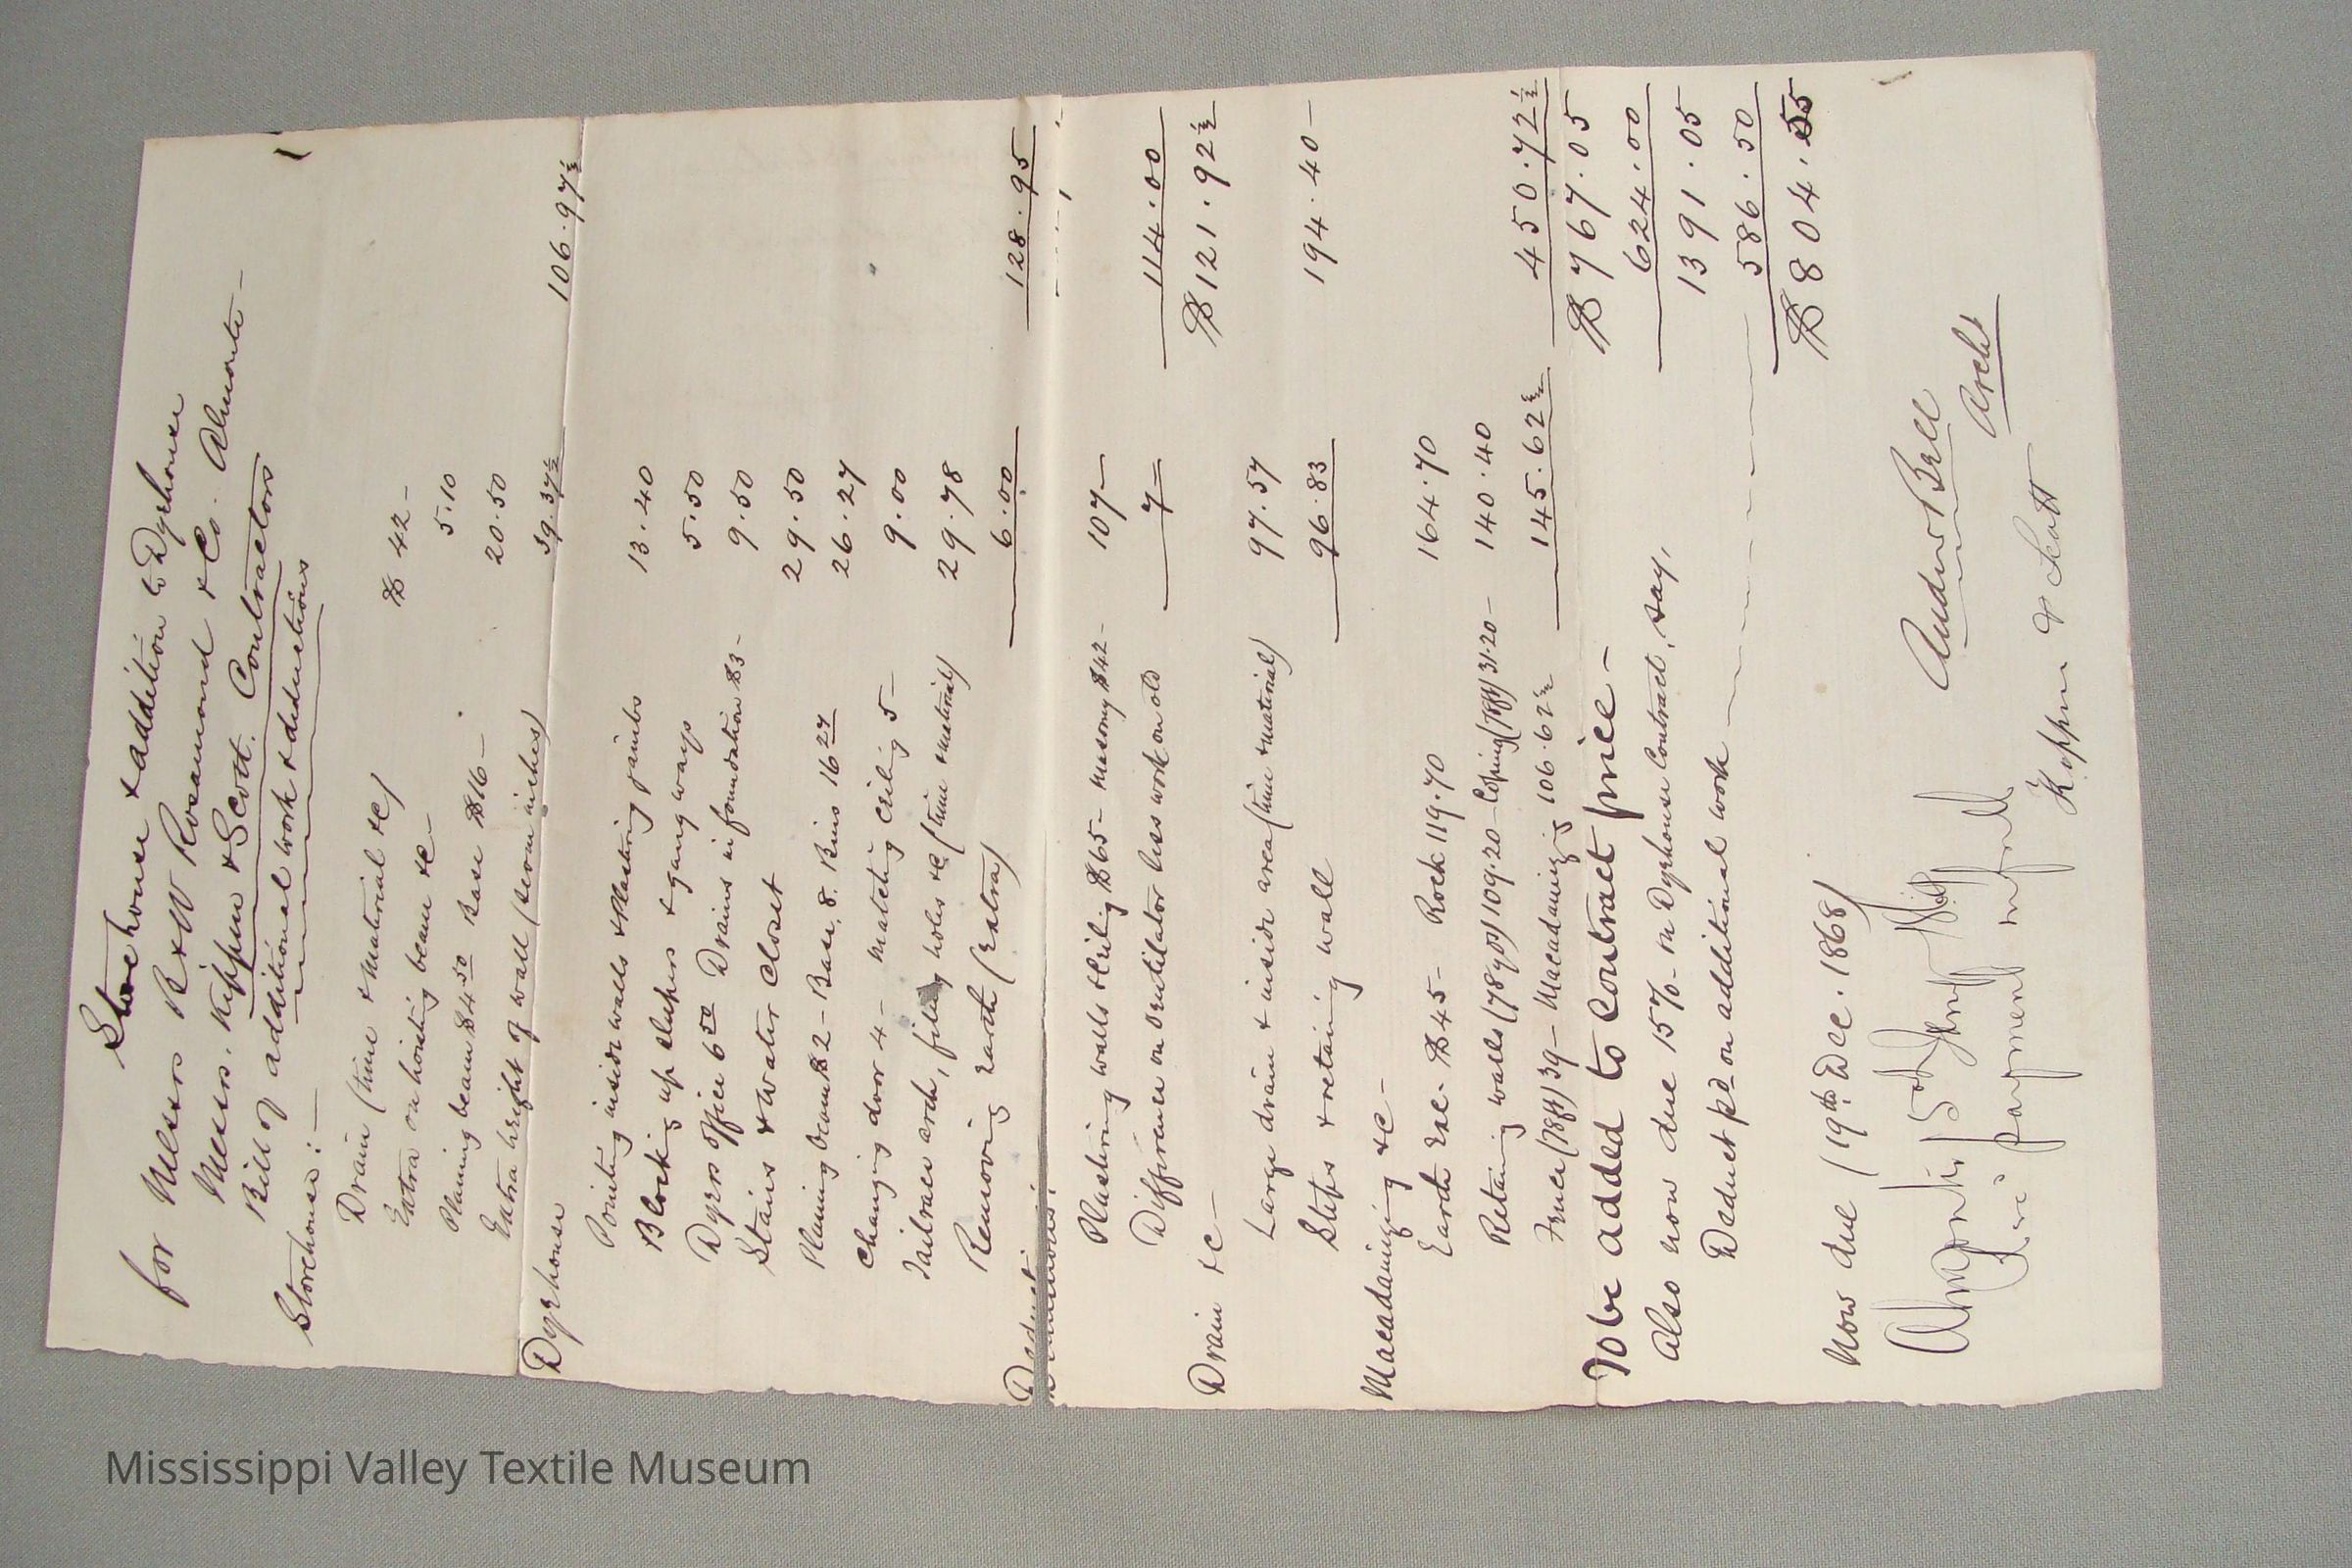 Storehouse & addition to Dyehouse
for Messrs B & W Rosamond & Co. Almonte —
Messrs. Kippen & Scott. Contractors
Bill of additional work & deductions
Storehouse : —
Drain (time & material &c) $ 42 -
Extra on hoisting beam &c — 5.10
Planing beam $4 50 Base $16 — 20.50
Extra height of wall (seven inches) 39.37½ 106.97½
Dyehouse
Pointing inside walls & plastering jambs 13.40
Blocking up sleepers & gang ways 5.50
Dyers office 6 50 Drains in foundation $3 - 9.50
Stairs & water closet 29.50
Planing Beam $2 - Base, 8. Bins 16 27 26.27
Changing door 4 - Matching ceiling 5 - 9.00
Tailrace arch, filling holes &c (time & material) 29.78
Removing earth (extra) 6.00 128.95
Deduct
Plastering walls & ceiling $65 - Masonry $42 - 107 -
Difference on ventilator less work on old 7 = 114.00
Drain &c — $121.92½
Large drain & inside area (time & material) 97.57
Steps & retaining wall 96.83 194.40 -
Macadamizing &c —
Earth Exc. $45 - Rock 119.70 164.70
Retaining walls (78 yds) 109.20 - Coping (78ft) 31.20 - 140.40
Fence (78ft) 39 - Macadamizing 106.62½ 145.62½ 450.72½
To be added to Contract price — $767.05
Also now due 15% on Dyehouse Contract, say, 624.00
1391.05
Deduct pd on additional work 586.50
$804.55
Now due (19th Dec. 1868)
Andrew Bell
Archt
Almonte, 15th Jany
payment in full
Kippen & Scott
Mississippi Valley Textile Museum